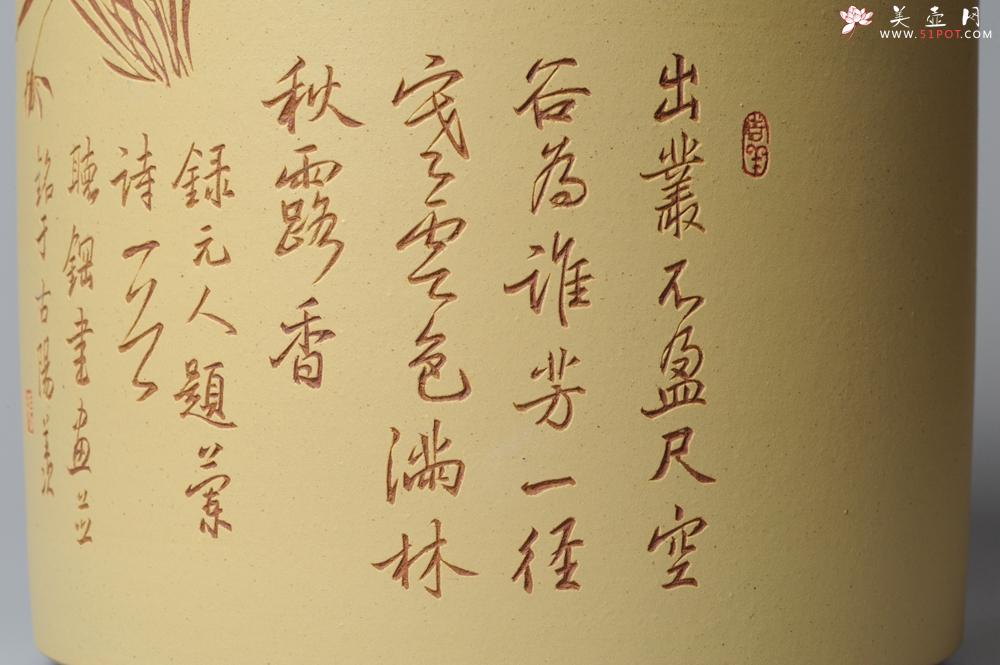 吉羊
出叢不盈尺空
谷為誰芳一径
寒雲色滿林
秋露香
録元人題蘭
詩一首
聴鋼書畫並
銘于古陽羨
美壶网
WWW.51POT.COM